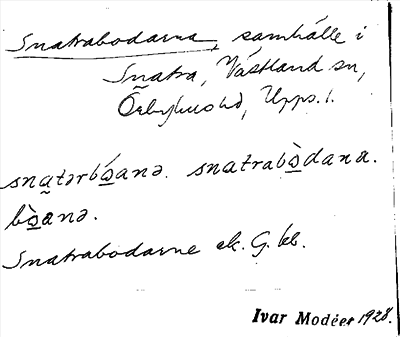 Snatrabodarna, samhälle i
Snatra, Västland sn,
Örbyhus hd, Upps. l.
snatərbo̱ánə. snatrabò̱dana.
bò̱anə.
Snatrabodarne ek. G. bl.
Ivar Modéer 1928.